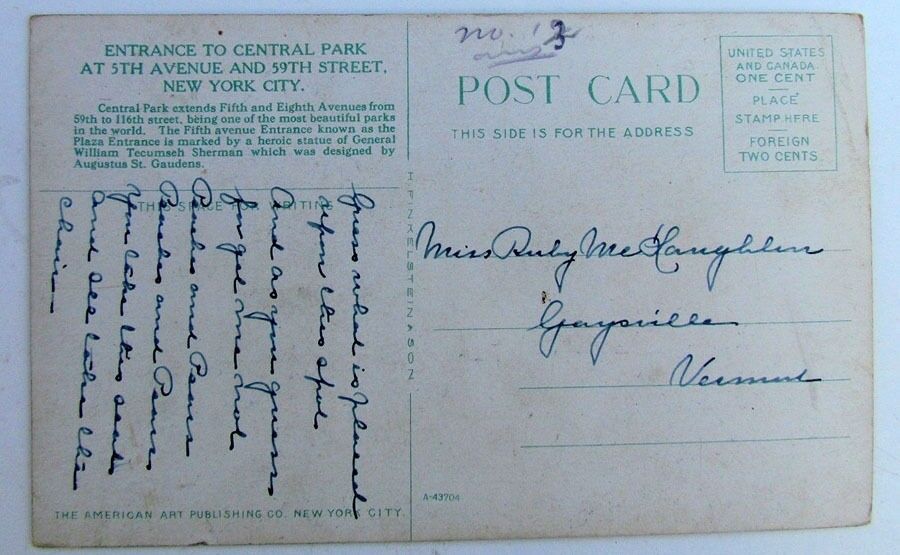 no. 12
3
ENTRANCE TO CENTRAL PARK
AT 5TH AVENUE AND 59TH STREET,
NEW YORK CITY.
Central Park extends Fifth and Eighth Avenues from
59th to 116th street, being one of the most beautiful parks
in the world. The Fifth avenue Entrance known as the
Plaza Entrance is marked by a heroic statue of General
William Tecumseh Sherman which was designed by
Augustus St. Gaudens.
THIS SPACE FOR WRITING
Guess what is placed
upon this spot
And as you guess
forget me not
Pecks and Pears
Pecks and Pears
You take this seat
and I'll take the
chair
THE AMERICAN ART PUBLISHING CO. NEW YORK CITY.
H FINKELSTEIN & SON
POST CARD
THIS SIDE IS FOR THE ADDRESS
UNITED STATES
AND CANADA
ONE CENT
PLACE
STAMP HERE
FOREIGN
TWO CENTS
Miss Ruby McLaughlin
Gaysville
Vermont
A-43704